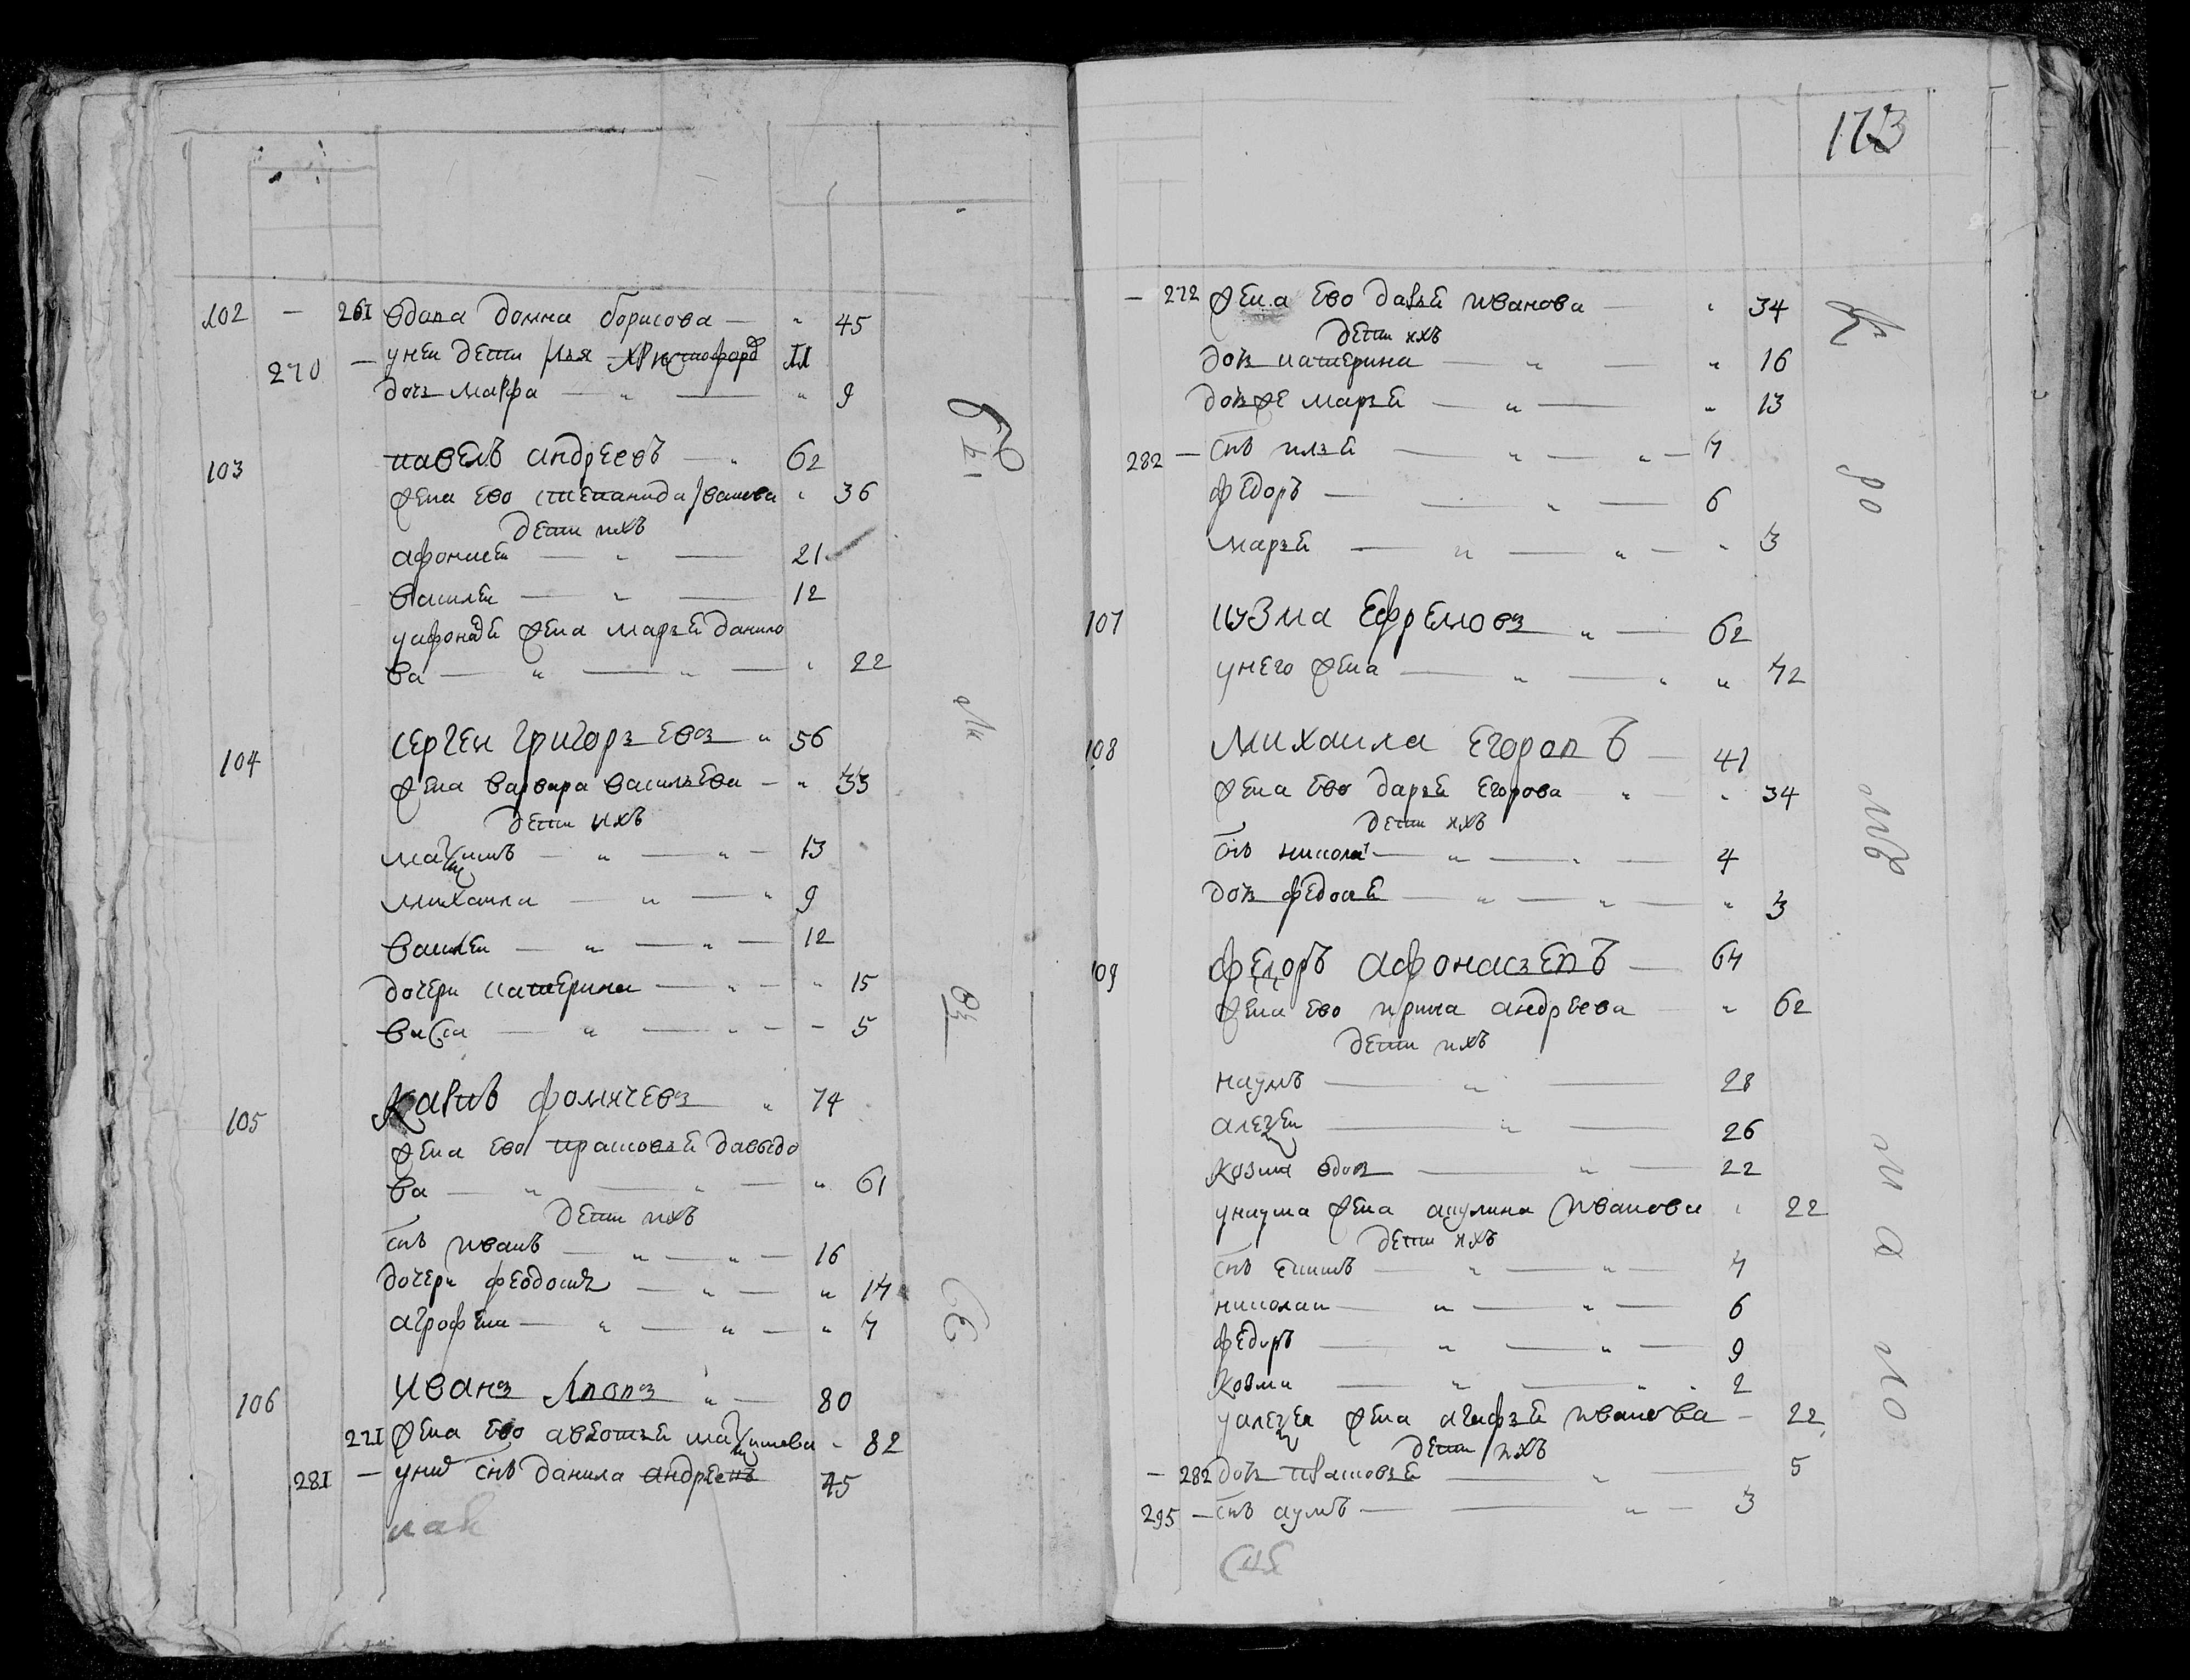 102 — 261 вдова домна борисова — " 45
270 — унеи дети илья христофоръ 11
дочь марфа — " — " 9
103 павелъ андреевъ — " 62
жена ево степанида иванова " 36
дети ихъ
афонасеи — " — 21
василеи — " — 12
уафонасеи жена марья данило
ва — " — " — " 22
104 сергеи григорьевъ " 56
жена варвара васильева — " 33
дети ихъ
максимъ — " — " — 13
михаила — " — " 9
василеи — " — " — 12
дочери катерина — " — " 15
васса — " — " — — 5
105 карпъ фомичевъ " 74
жена ево прасковья давыдо
ва — " — " — " 61
дети ихъ
снъ иванъ — " — " — 16
дочери феодосия — " — " 14
агрофена — " — " — " 7
106 иванъ " — 80
271 жена ево авдотья максимова " 82
281 — снъ данила андреевъ 45
173
— 272 жена ево дарья иванова — " 34
дети ихъ
дочь катерина — " — " 16
дочь же марья — " — " 13
282 — снъ илья — " — " — 7
федоръ — " — 6
марья — " — " — " 3
107 кузма ефремовъ " — 62
унего жена — " — " " 72
108 михаила егоровъ — 41
жена ево дарья егорова " — " 34
дети ихъ
снъ николаи — " — " — 4
дочь федосья — " — " — " 3
109 федоръ афонасьевъ — 64
жена ево ирина андреева — " 62
дети ихъ
наумъ — " — 28
алексеи — " — 26
козма вдовъ — " — 22
унаума жена акулина иванова " 22
дети ихъ
снъ екимъ — " — " — 7
николаи — " — " — 6
федоръ — " — " — 9
козма — " — " . 2
уалексеи жена агафья иванова — 22
дети ихъ
— 282 дочь прасковья — " — 5
295 — снъ наумъ — — " — 3